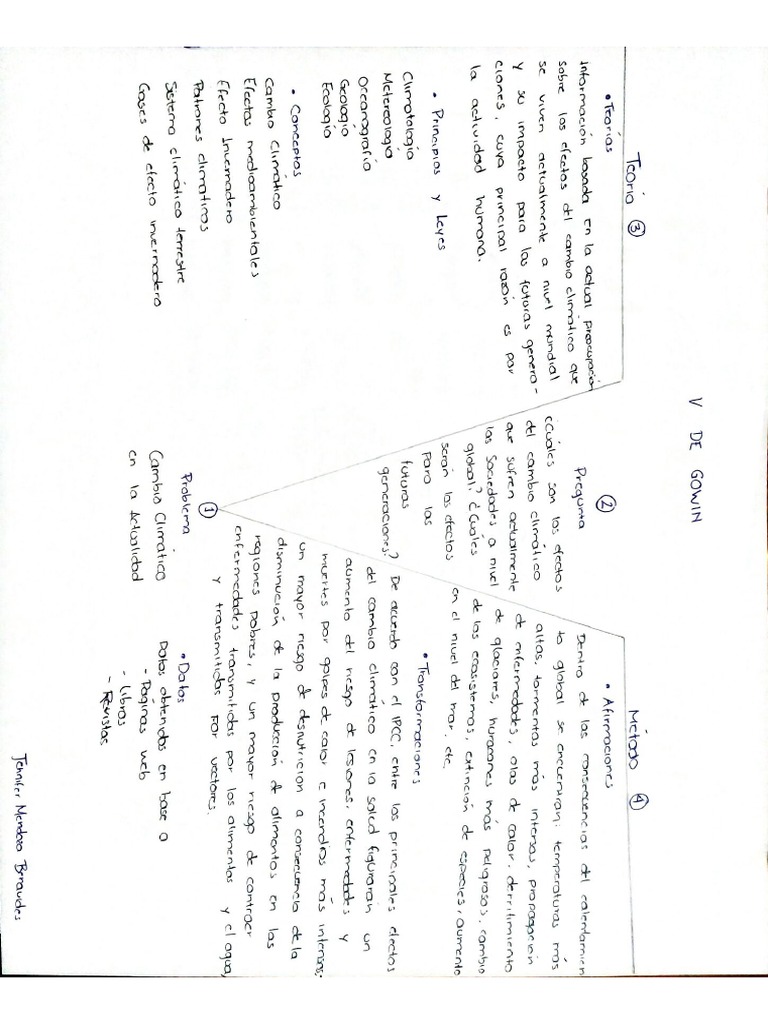 V DE GOWIN
Teoría ③
• Teorías
Información basada en la actual preocupación
sobre los efectos del cambio climático que
se viven actualmente a nivel mundial
y su impacto para las futuras genera-
ciones, cuya principal razón es por
la actividad humana.
• Principios y Leyes
Climatología
Metereología
Oceanografía
Geología
Ecología
• Conceptos
Cambio Climático
Efectos medioambientales
Efecto Invernadero
Patrones climáticos
Sistema climático terrestre
Gases de efecto invernadero
②
Pregunta
¿Cuáles son los efectos
del cambio climático
que sufren actualmente
las Sociedades a nivel
global? ¿Cuáles
serán los efectos
para las
futuras
generaciones?
①
Problema
Cambio Climático
en la Actualidad
Método ④
• Afirmaciones
Dentro de las consecuencias del calentamien
to global se encuentran: temperaturas más
altas, tormentas más intensas, propagación
de enfermedades, olas de calor, derritimiento
de glaciares, huracanes más peligrosos, cambio
de los ecosistemas, extinción de especies, aumento
en el nivel del mar, etc.
• Transformaciones
De acuerdo con el IPCC, entre los principales efectos
del cambio climático en la salud figurarán un
aumento del riesgo de lesiones, enfermedades y
muertes por golpes de calor e incendios más intensos;
un mayor riesgo de desnutrición a consecuencia de la
disminución de la producción de alimentos en las
regiones pobres, y un mayor riesgo de contraer
enfermedades transmitidas por los alimentos y el agua,
y transmitidas por vectores.
• Datos
Datos obtenidos en base a
- Paginas web
- Libros
- Revistas
Jennifer Mendoza Benavides